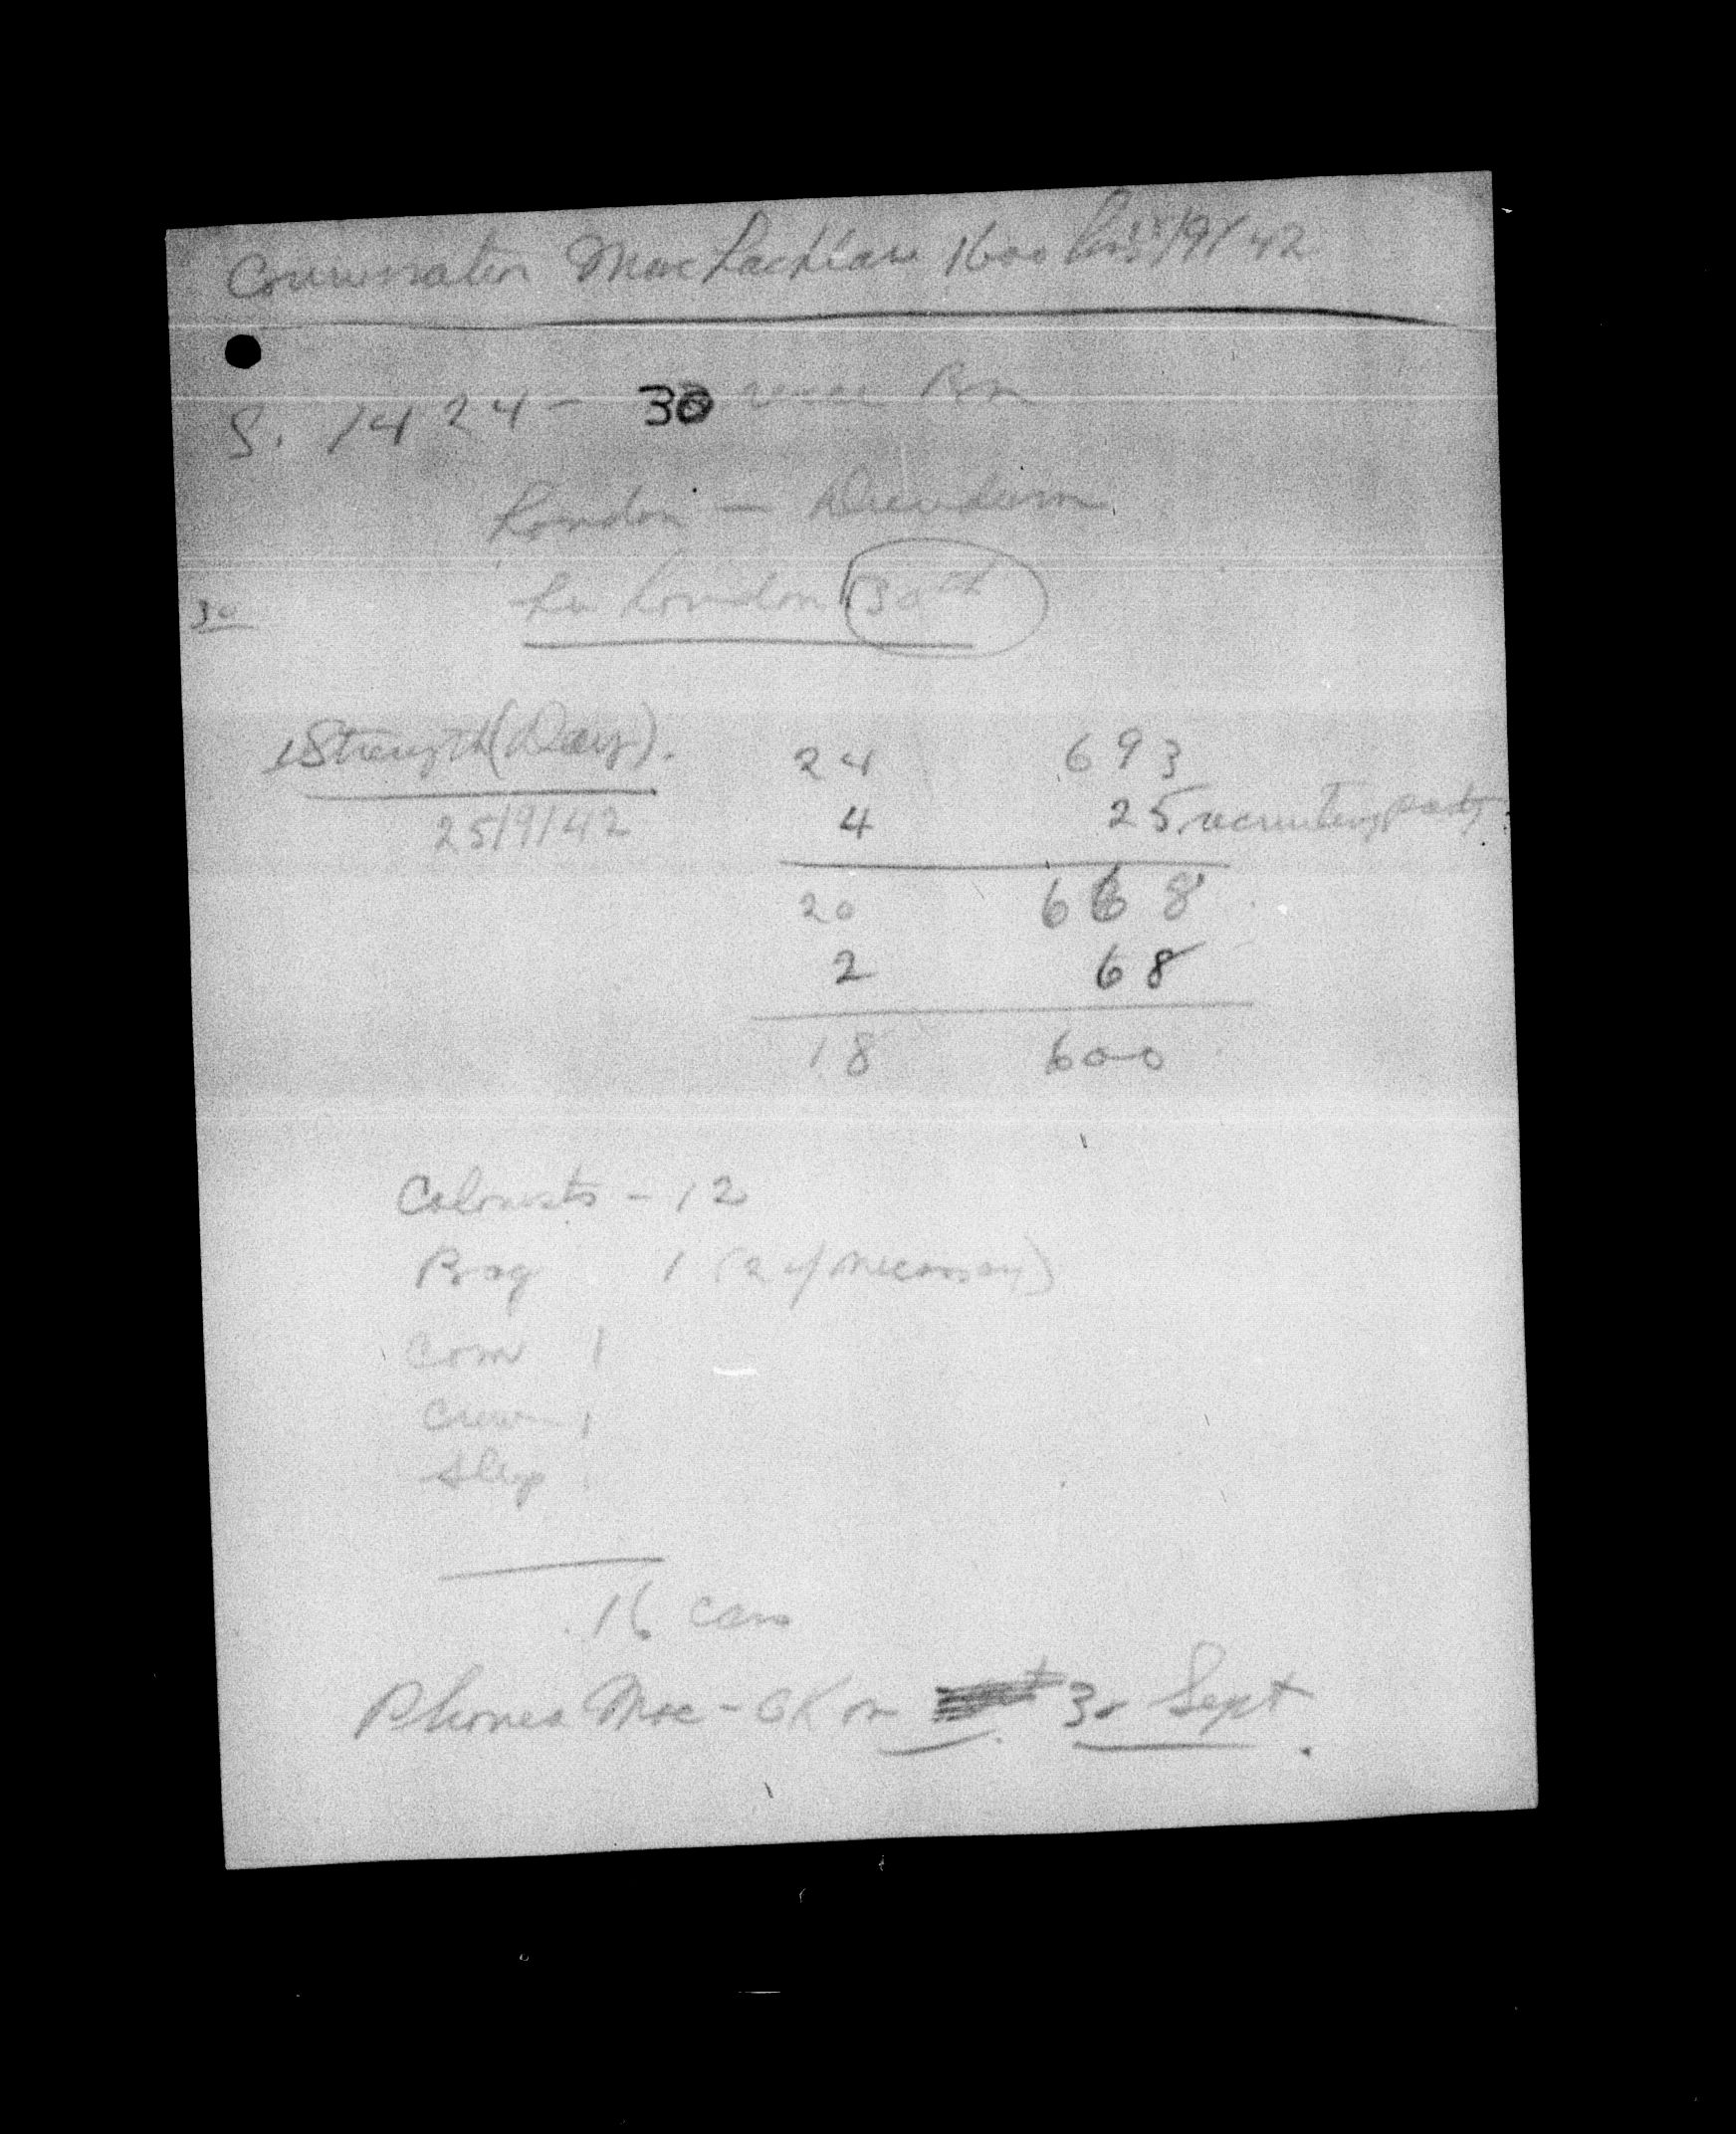 Conversation MacLachlan 1600 hrs 25/9/42
S. 1424 - 30 Bn
London - Windsor
Lv London 30th
30
Strength (Day). 24 693
25/9/42 4 25 recruiting party
20 668
2 68
18 600
Colonists - 12
Bag 1 (2 if necessary)
Com 1
Crew 1
Slep 1
16 cars
Phones Mac - OK on 30 Sept.